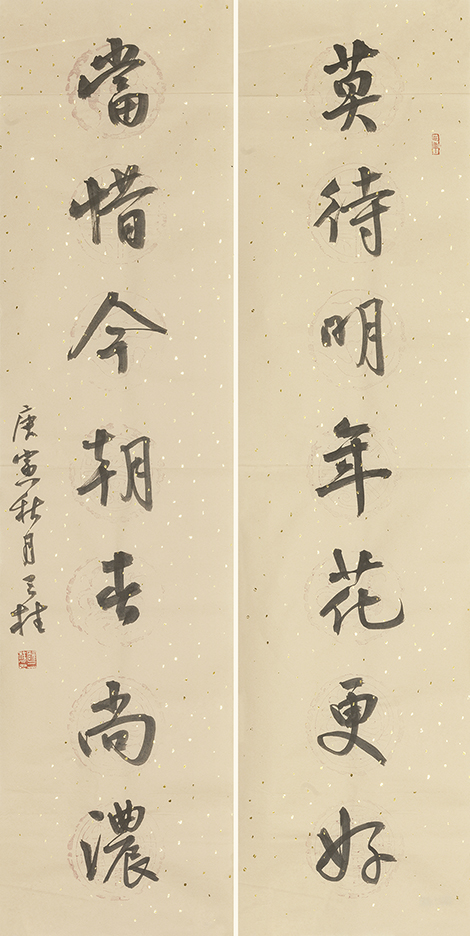 莫待明年花更好
當惜今朝春尚濃
庚寅秋月